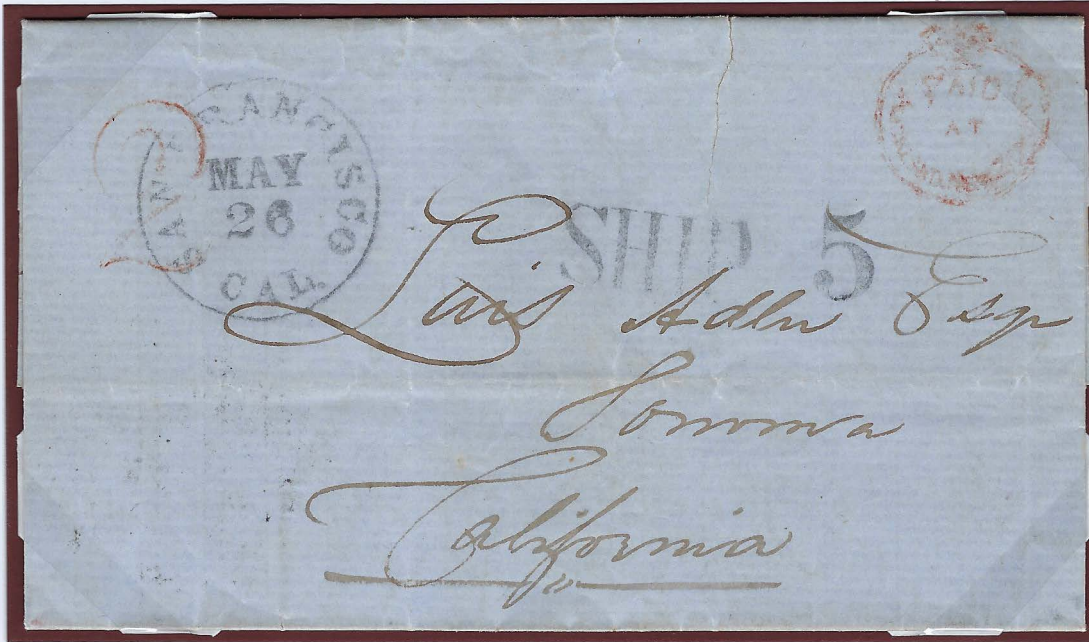 SAN FRANCISCO
MAY
26
CAL.
2
PAID
AT
SHIP 5
Luis Adler Esqr
Sonoma
California